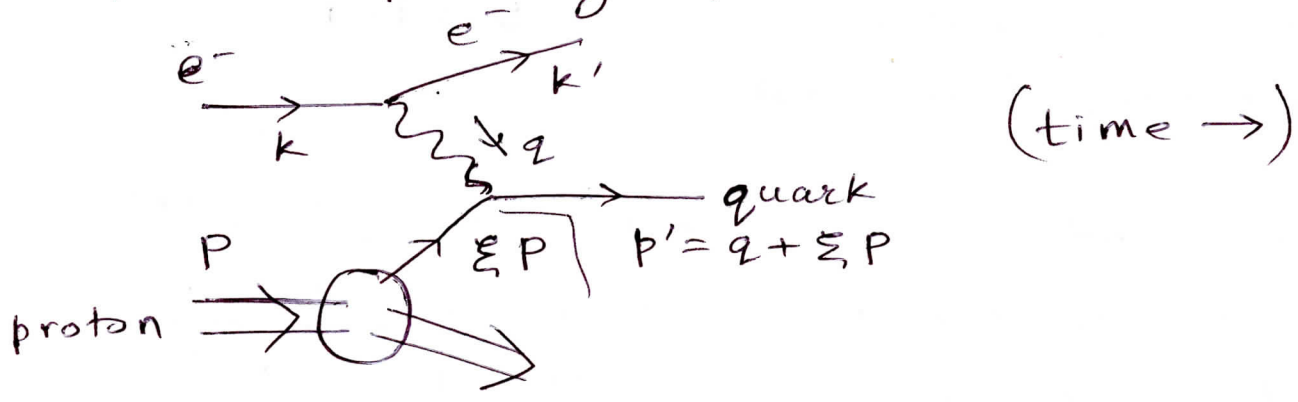 e⁻
e⁻
k'
k
q
(time →)
quark
P
ξP
p' = q + ξP
proton